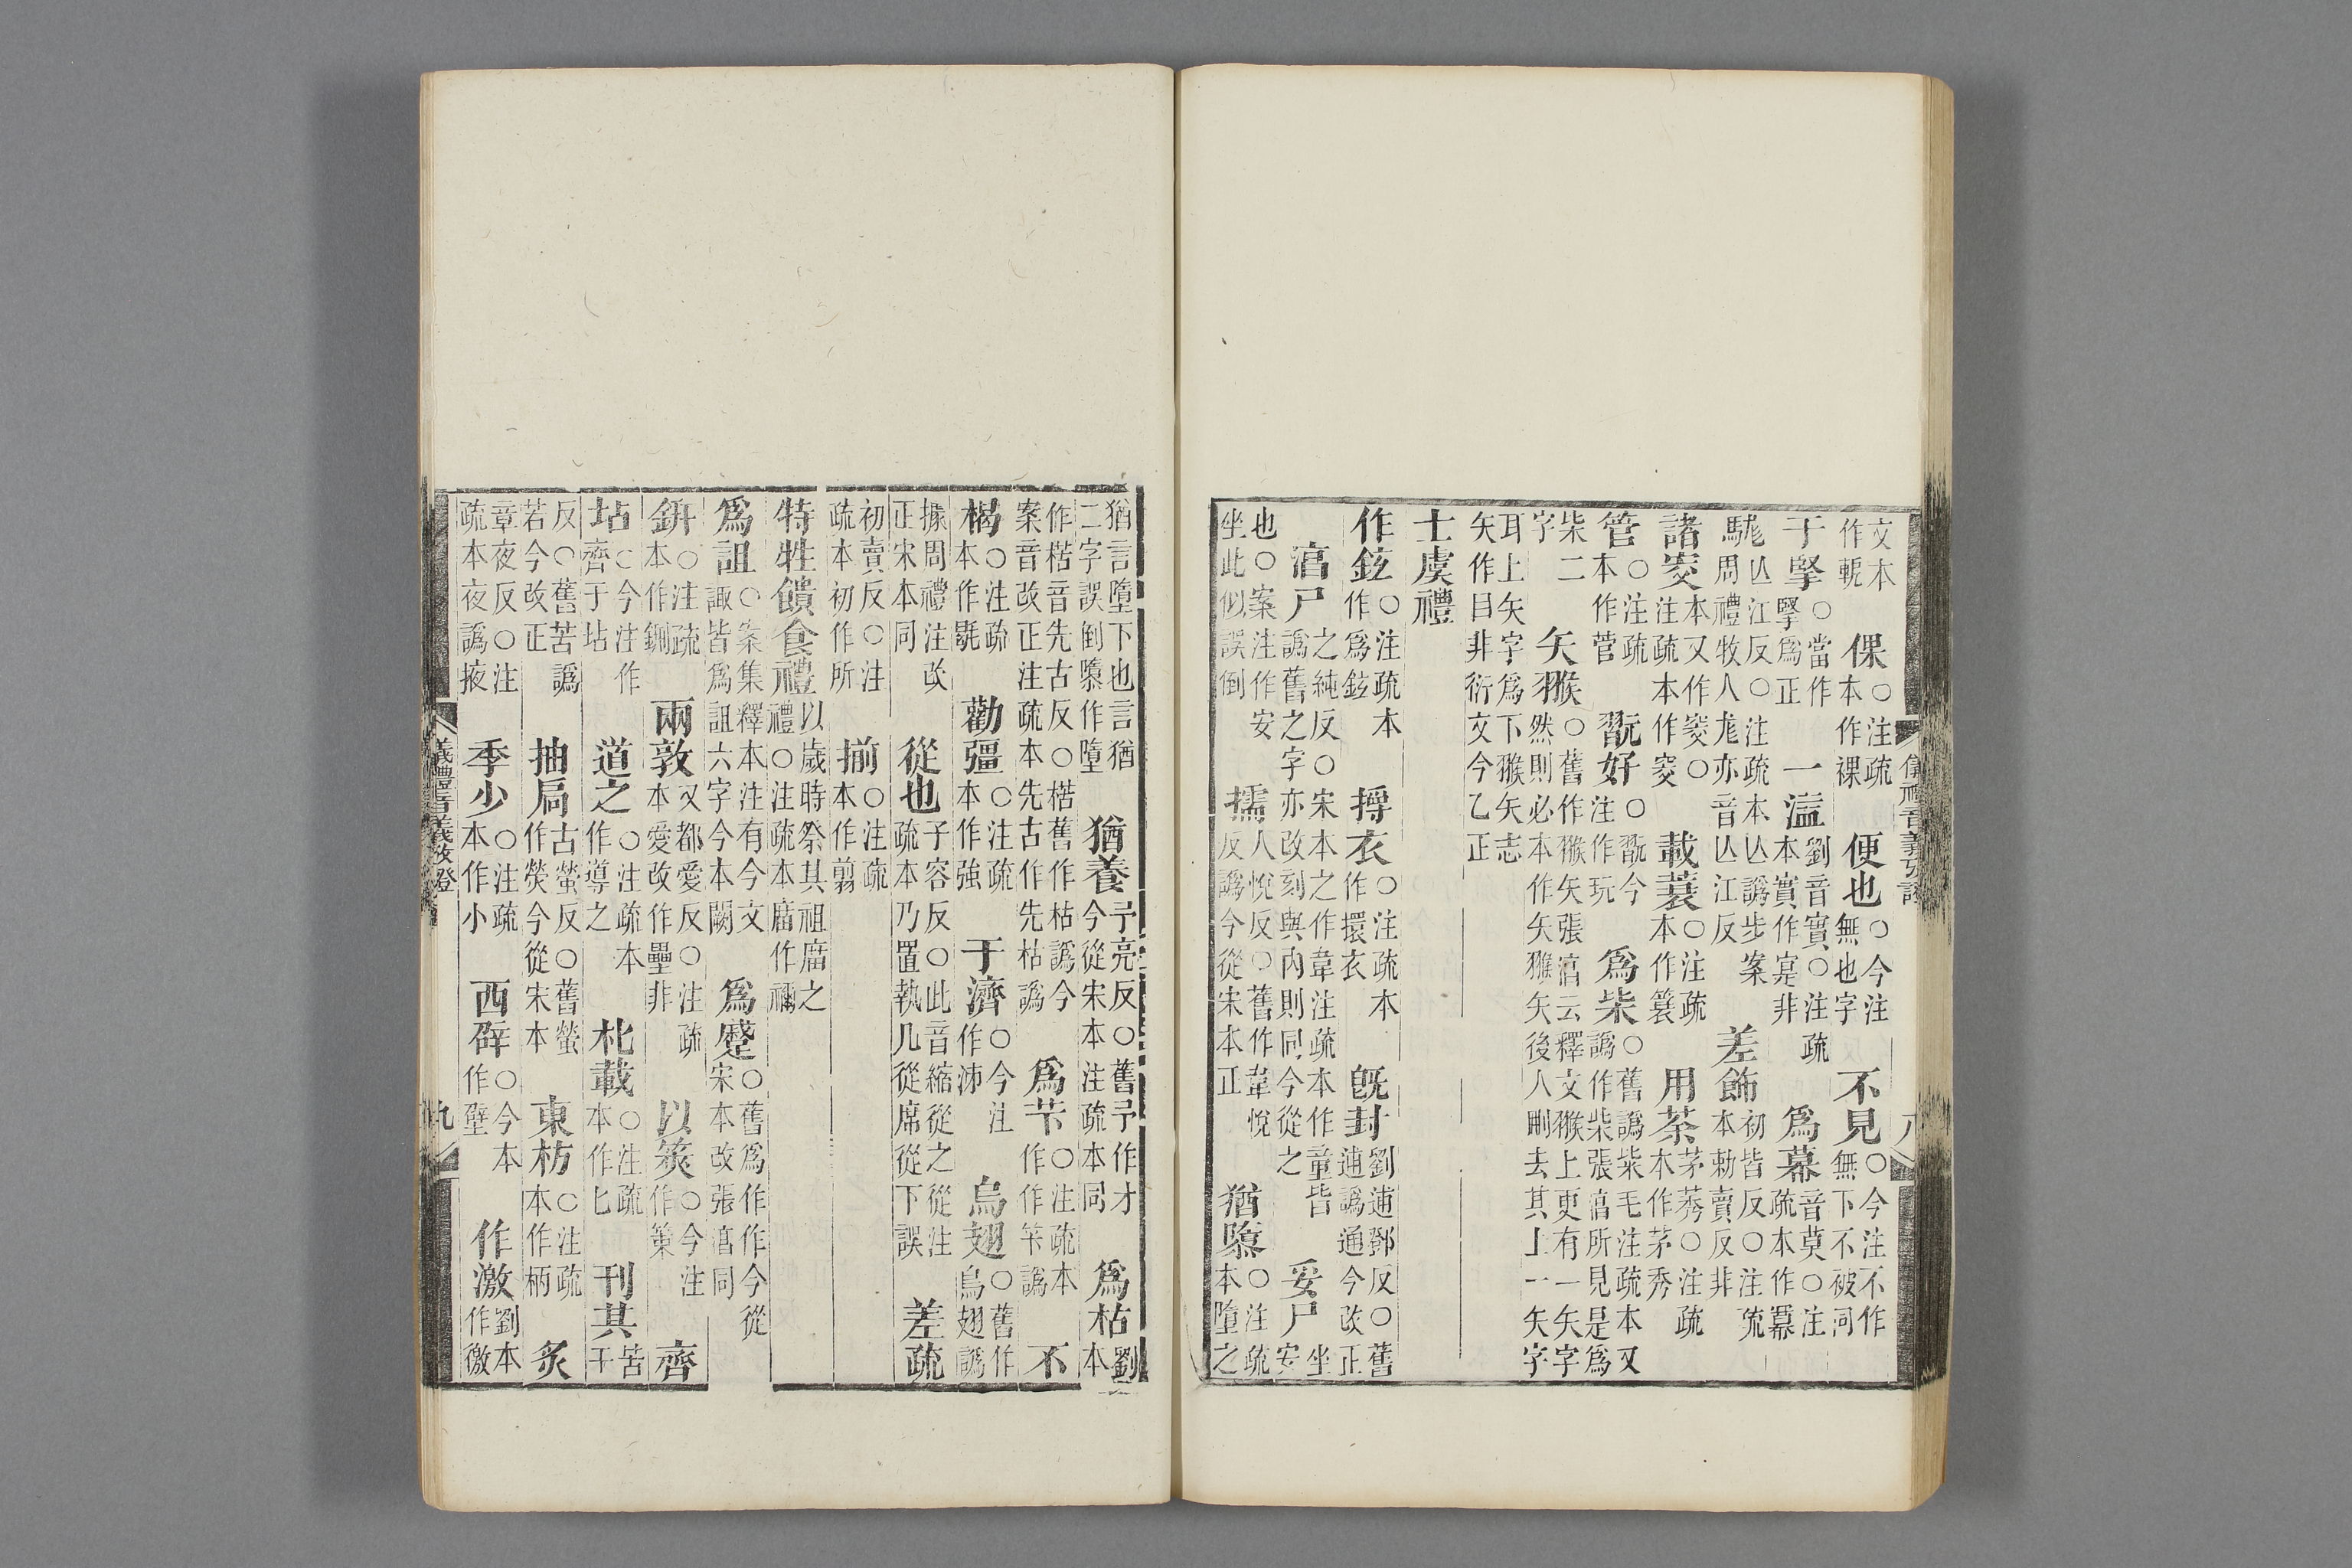 文本作輗　倮○注疏本作裸　便也○今注無也字　不見○今注不作無下不被同
于掔○當作掔爲正　一溢劉音實○注疏本實作寔非　爲幕音莫○注疏本作羃
駹亾江反○注疏本亾譌步案周禮牧人尨亦音亾江反　差飾初皆反○注疏本勅賣反非
諸窔本又作窔○注疏本作穾　載蓑○注疏本作簑　用荼茅莠○注疏本作茅秀
管○注疏本作菅　翫好○翫今注作玩　爲柴○舊譌柴毛注疏本又譌作柴張淳所見是爲
柴二字　矢猴○舊作猴矢張淳云釋文猴上更有一矢字然則必本作矢猴矢後人刪去其上一矢字
耳上矢字爲下猴矢志矢作目非衍文今乙正
士虞禮
作鉉○注疏本作爲鉉　撏衣○注疏本作擐衣　旣封劉逋鄧反○舊逋譌通今改正
淳尸之純反○宋本之作韋注疏本作童皆譌舊之字亦改刻與內則同今從之　妥尸坐安
也○案注作安坐此似誤倒　擩人悅反○舊作韋悅反譌今從宋本正　猶隳○注疏本墮之
儀禮音義攷證
八
猶言墮下也言猶二字誤倒隳作墮　猶養予亮反○舊予作才今從宋本注疏本同　爲枯劉本
作楛音先古反○楛舊作枯譌今案音改正注疏本先古作先枯譌　爲芐○注疏本作芐譌　不
楬○注疏本作毼　勸彊○注疏本作強　于濟○今注作泲　烏翅○舊作烏翅譌
據周禮注改正宋本同　從也子容反○此音縮從之從注疏本乃置執几從席從下誤　差疏
初賣反○注疏本初作所　揃○注疏本作翦
特牲饋食禮以歲時祭其祖廟之禮○注疏本廟作禰
爲詛○案集釋本注有今文諏皆爲詛六字今本闕　爲蹙○舊爲作作今從宋本改張淳同
鈃○注疏本作鉶　兩敦又都愛反○注疏本愛改作壘非　以筴○今注作策　齊
坫○今注作齊于坫　道之○注疏本作導之　朼載○注疏本作匕　刊其苦干
反○舊苦譌若今改正　抽扃古螢反○舊螢作熒今從宋本　東枋○注疏本作柄　炙
章夜反○注疏本夜譌掖　季少○注疏本作小　西薜○今本作壁　作激劉本作徼
儀禮音義攷證
九